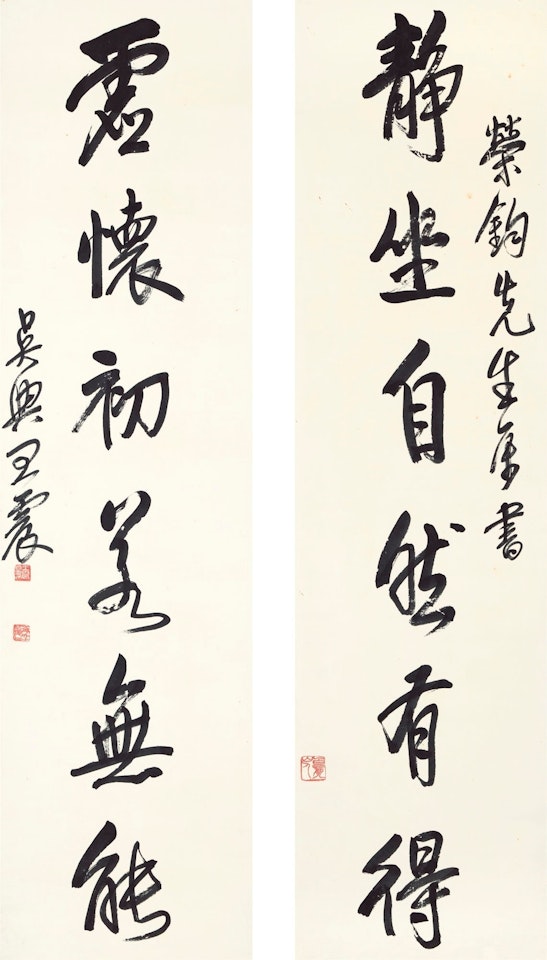 榮鈞先生屬書
靜坐自然有得
虛懷初若無能
吳興王震